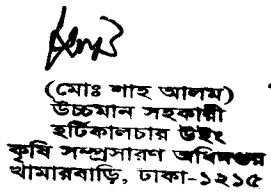 (মোঃ শাহ আলম)
উচ্চমান সহকারী
হর্টিকালচার উইং
কৃষি সম্প্রসারণ অধিদপ্তর
খামারবাড়ি, ঢাকা-১২১৫